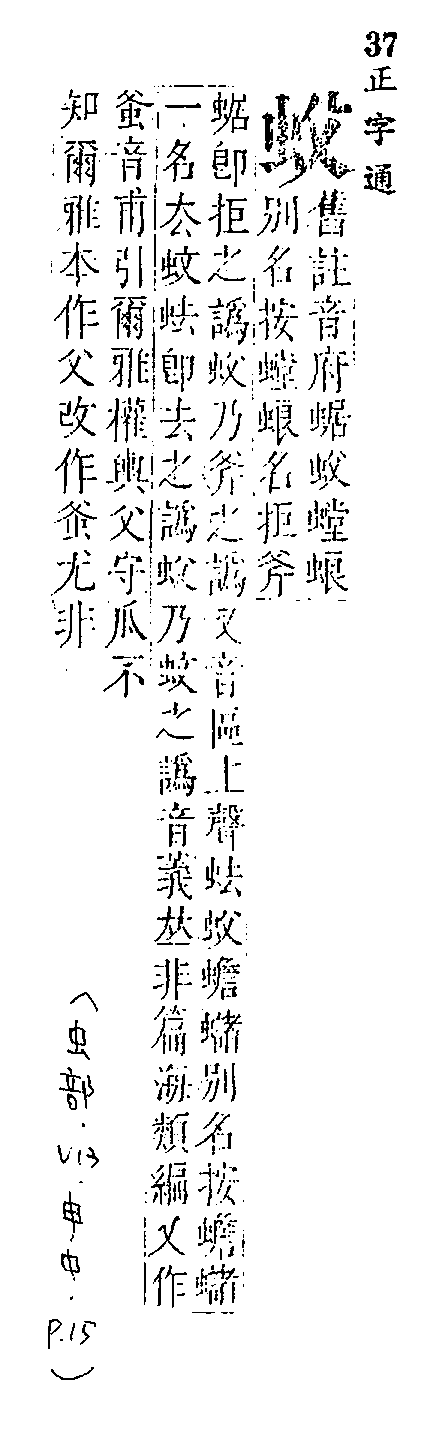 37正字通
蚥
舊註音府蜛蚥螳蜋
別名按螳蜋名拒斧
蜛卽拒之譌蚥乃斧之譌又音區上聲蚥蟾蠩別名按蟾蠩
一名厺蚊卽去之譌蚥乃蚊之譌音義𠀤非篇海類編又作
音甫引爾雅權輿父守瓜不
知爾雅本作父改作尤非
(虫部.V13.申中.P.15)